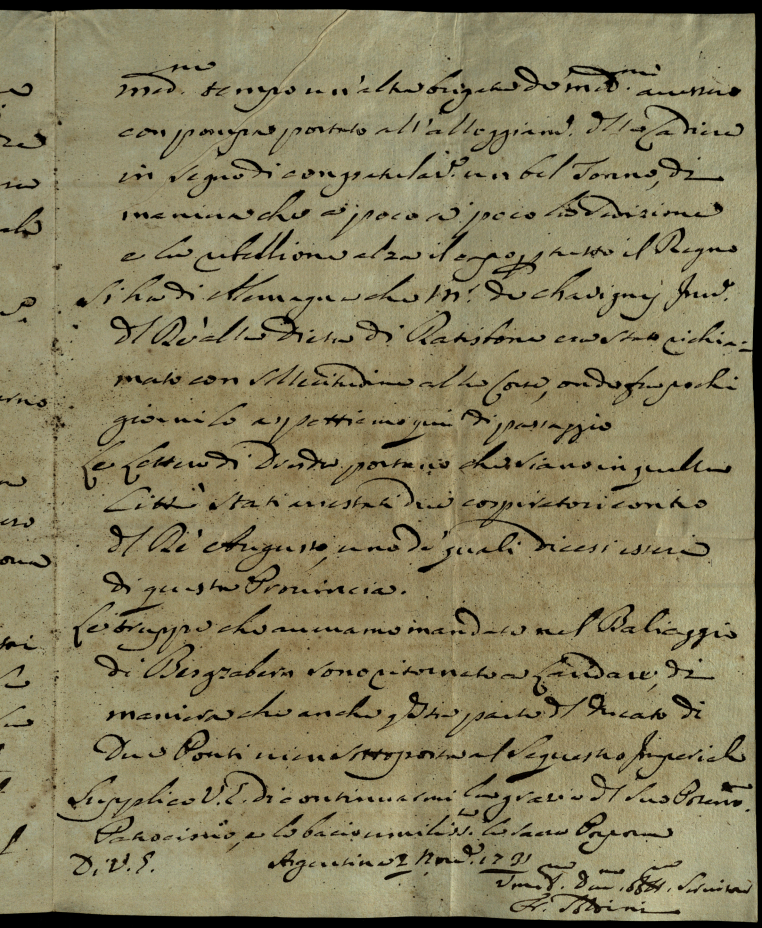 med.mo tempo un'altra brigata de' med.mi avesse
con pompa portato all'alloggiam.to della Cadiere
in segno di congratulaz.e un bel Torno, di
maniera che à poco à poco la divisione
e la ribellione alza il capo p tutto il Regno
Si ha di Alemagna che Mr. de Chavignij Inv.o
del Rè alla Dieta di Ratisbona era stato richia-
mato con sollecitudine alla Corte, onde fra pochi
giorni lo aspettiamo qui di passaggio
Le Lettere di Dresda portano che siano in quella
Città stati arrestati due cospiratori contro
del Rè Augusto, uno de' quali dicesi essere
di questa Provincia.
Le truppe che avevamo mandate nel Baliaggio
di Bergzabern sono ritornate a Landau, di
maniera che anche questa parte del Ducato di
Due Ponti viene sottoposta al Sequestro Imperiale
Supplico V.E. di continuarmi la grazia del suo Poten.mo
Patrocinio, e le bacio umilis.te la sacra Porpora
Di V.E. Argentina 2 Nov.e 1731
Umil. Dev. Obb. Servitore